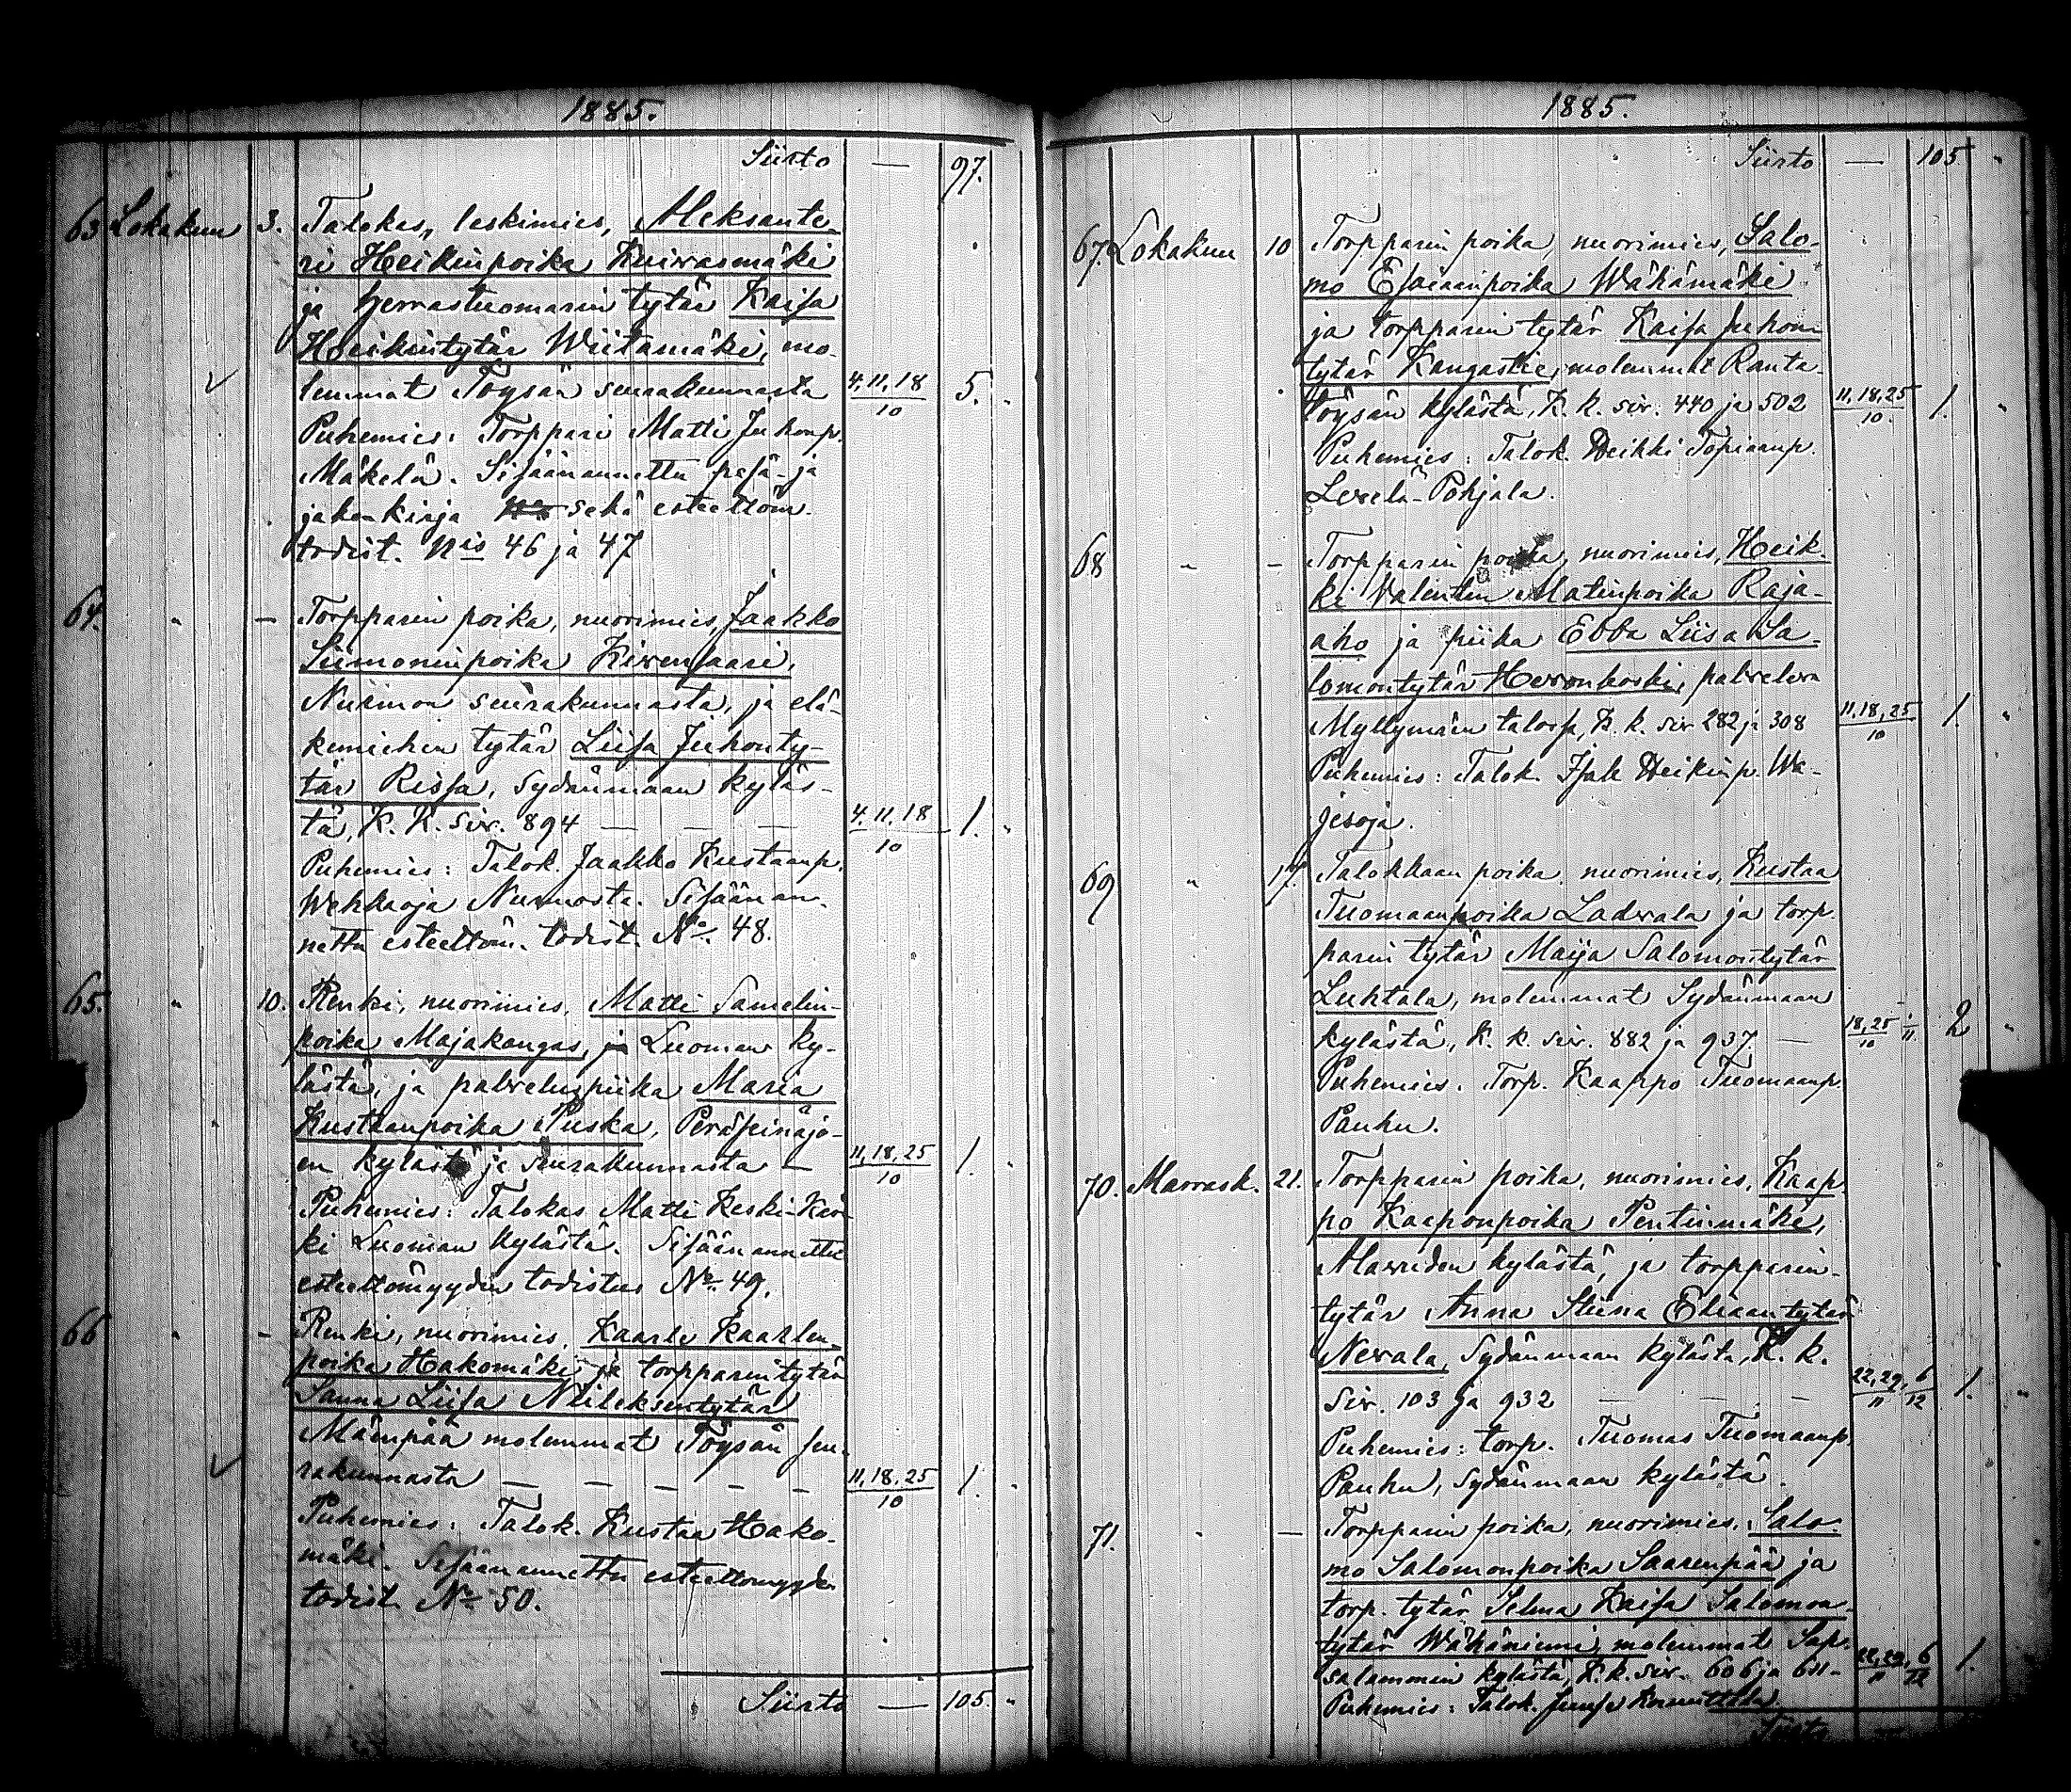 1885.
Siirto — 97.
63 Lokakuun 3. Talokas, leskimies, Aleksante-
ri Heikinpoika Kuivasmäki
ja herrastuomarin tytär Kaisa
Heikintytär Wiitamäki, mo-
lemmat Töysän seurakunnasta 4.11.18/10 5.
Puhemies: Torppari Matti Juhonp.
Mäkelä. Sisäänannettu pesä- ja
jakokirja sekä esteettöm.
todist. Nis 46 ja 47
64. " — Torpparin poika, nuorimies, Jaakko
Siimoninpoika Kivensaari,
Nurmon seurakunnasta, ja elä-
kemiehen tytär Liisa Juhonty-
tär Rissa, Sydänmaan kyläs-
tä, K. K. siv. 894 — — — 4.11.18/10 1.
Puhemies: Talok. Jaakko Kustaanp.
Wehkaoja Nurmosta. Sisäänan-
nettu esteettöm. todist. No. 48.
65. " 10. Renki, nuorimies, Matti Samelin-
poika Majakangas, ja Luoman ky-
lästä, ja palveluspiika Maria
Kustaanpoika Puska, Peräseinäjo-
en kylästä ja seurakunnasta — 11,18,25/10 1.
Puhemies: Talokas Matti Keski-
ki Luoman kylästä. Sisäänannettu
esteettömyyden todistus No. 49.
66 " — Renki, nuorimies, Kaarle Kaarlen-
poika Hakomäki ja torpparin tytär
Sanna Liisa Niileksentytär
Mäenpää molemmat Töysän seu-
rakunnasta — — — — — 11,18,25/10 1.
Puhemies: Talok. Kustaa Hako-
mäki. Sisäänannettu esteettömyyden
todist. No. 50.
Siirto — 105. "
1885.
Siirto — 105 "
67. Lokakuun 10 Torpparin poika, nuorimies, Salo-
mo Esaiaanpoika Wähämäki
ja torpparin tytär Kaisa Juhon
tytär Kangastie, molemmat Ranta-
töysän kylästä, K. k. siv. 440 ja 502 11,18,25/10. 1. "
Puhemies: Talok. Heikki Topiaanp.
Levelä-Pohjala.
68 " — Torpparin poika, nuorimies, Heik-
ki Valentin Matinpoika Raja-
aho ja piika Ebba Liisa Sa-
lomontytär Hevonkoski, palveleva
Myllymäen talossa, K. k. siv 282 ja 308 11,18,25/10 1. "
Puhemies: Talok. Isak Heikinp. Wa-
jesoja.
69 " 17. Talokkaan poika nuorimies, Kustaa
Tuomaanpoika Ladvala ja torp-
parin tytär Maija Salomontytär
Luhtala, molemmat Sydänmaan
kylästä, K. k. siv. 882 ja 937. — 18,25/10 1/11 2 "
Puhemies. Torp. Kaappo Tuomaanp.
Pauhu.
70. Marrask. 21. Torpparin poika, nuorimies, Kaap-
po Kaaponpoika Pentinmäki,
Mawuden kylästä, ja torpparin-
tytär Anna Stiina Eliaantytär
Nevala, Sydänmaan kylästä, K. k.
siv. 103 ja 932 — — — 22,29/11 6/12 1. "
Puhemies: torp. Tuomas Tuomaanp.
Pauhu, Sydänmaan kylästä.
71. " — Torpparin poika, nuorimies, Salo-
mo Salomonpoika Saarenpää ja
torp. tytär Selma Kaisa Salomon-
tytär Wähäniemi, molemmat Sap-
salammin kylästä, K. k. siv. 606 ja 611- 22,29/11 6/12 1.
Puhemies: Talok.
Siirto —